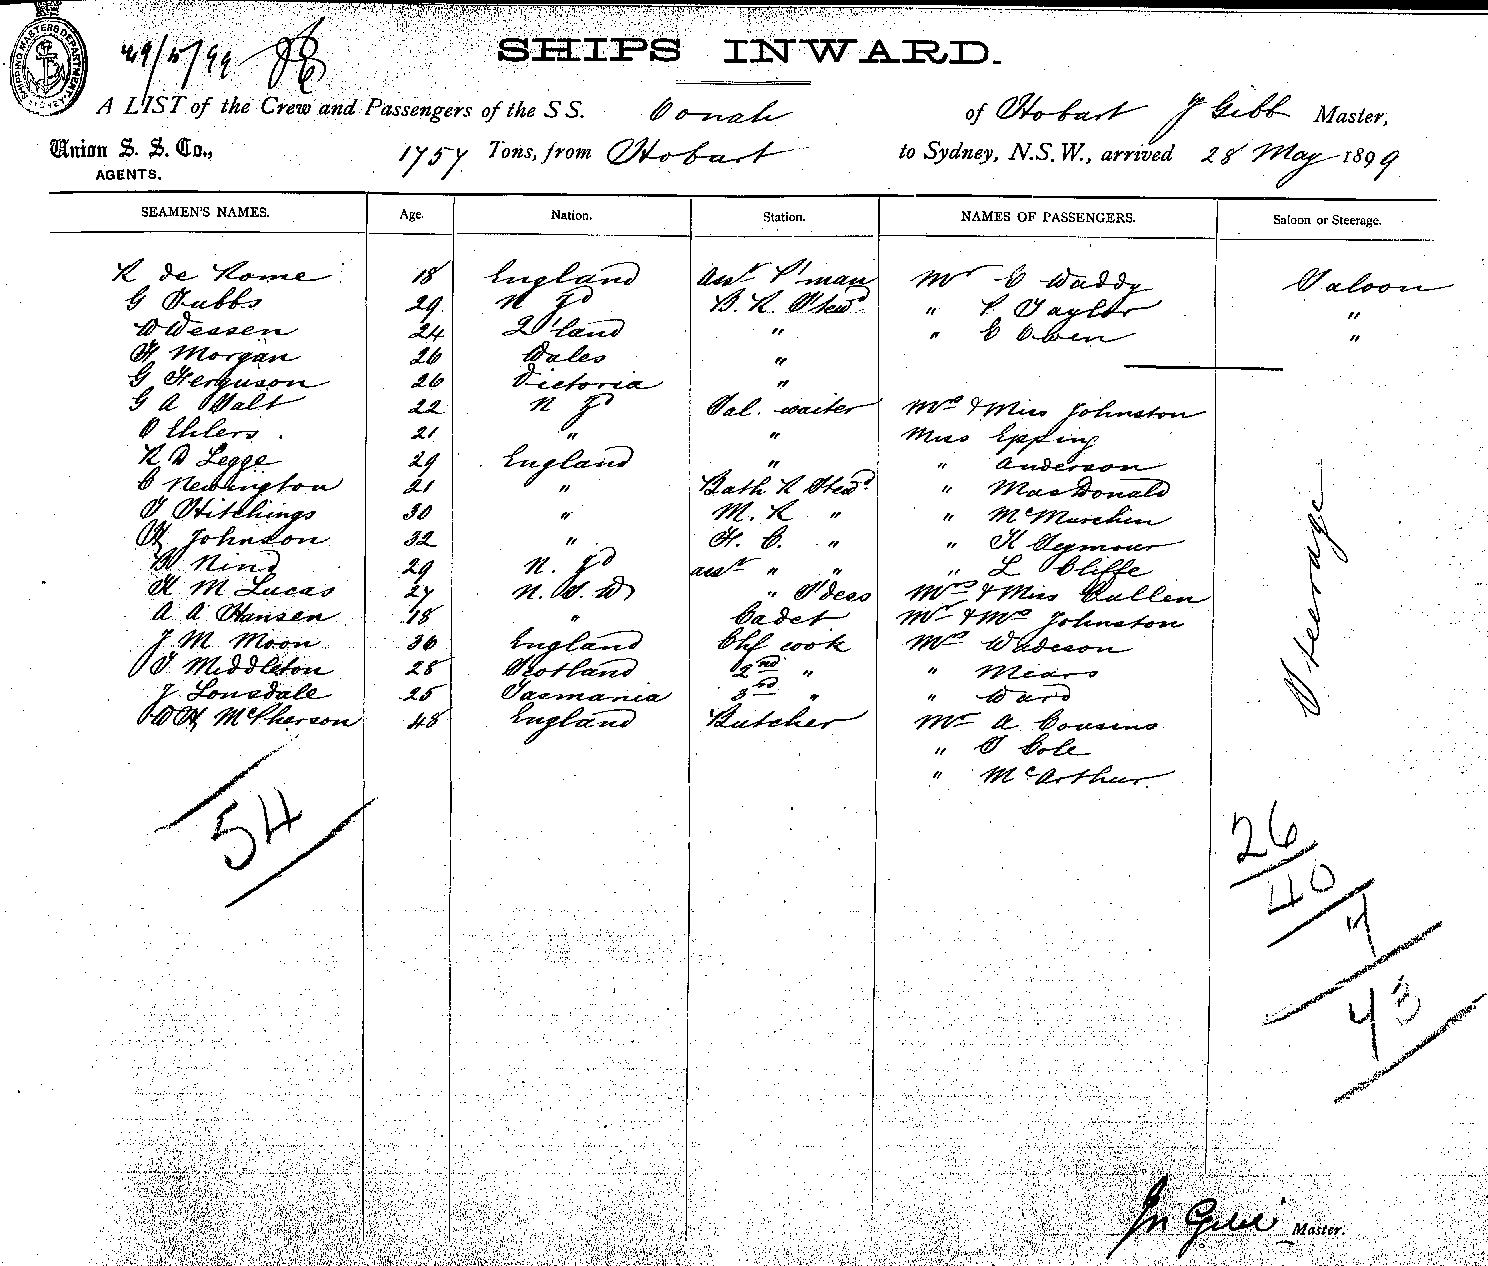 SHIPPING MASTERS DEPARTMENT
29/5/99
SHIPS INWARD.
A LIST of the Crew and Passengers of the S S. Oonah of Hobart J Gibb Master,
Union S. S. Co., 1757 Tons, from Hobart to Sydney, N.S.W., arrived 28 May 1899
AGENTS.
SEAMEN'S NAMES. Age. Nation. Station. NAMES OF PASSENGERS. Saloon or Steerage.
R de Rome 18 England Asst P'man Mr C Waddy Saloon
G Stubbs 29 N Zd B. R. Stewd " P Taylor "
W Wessen 24 Q'land " " C Owen "
H Morgan 26 Wales "
G Ferguson 26 Victoria "
G A Salt 22 N Zd Sal. waiter Mrs & Miss Johnston
O Ehlers. 21 " " Miss Epping
R D Legge 29 England " " Anderson
C Newington 21 " Bath R Stewd " MacDonald
T Hitchings 30 " M. R " " McMurchin
H Johnson 32 " F. C. " " K Seymour
B Nind 29 N. Zd asst " " " L Cliffe
K M Lucas 27 N. S. W " S'dess Mrs & Miss Cullen
A A Hansen 18 " Cadet Mr & Mrs Johnston
J M Moon 36 England Chf cook Mrs Wadeson
T Middleton 28 Scotland 2nd " " Mears
J Lonsdale 25 Tasmania 3rd " " Ward
W H McPherson 48 England Butcher Mr A Cousins
" T Cole
" McArthur.
Steerage
54
26
40
43
Jn Gibb Master.